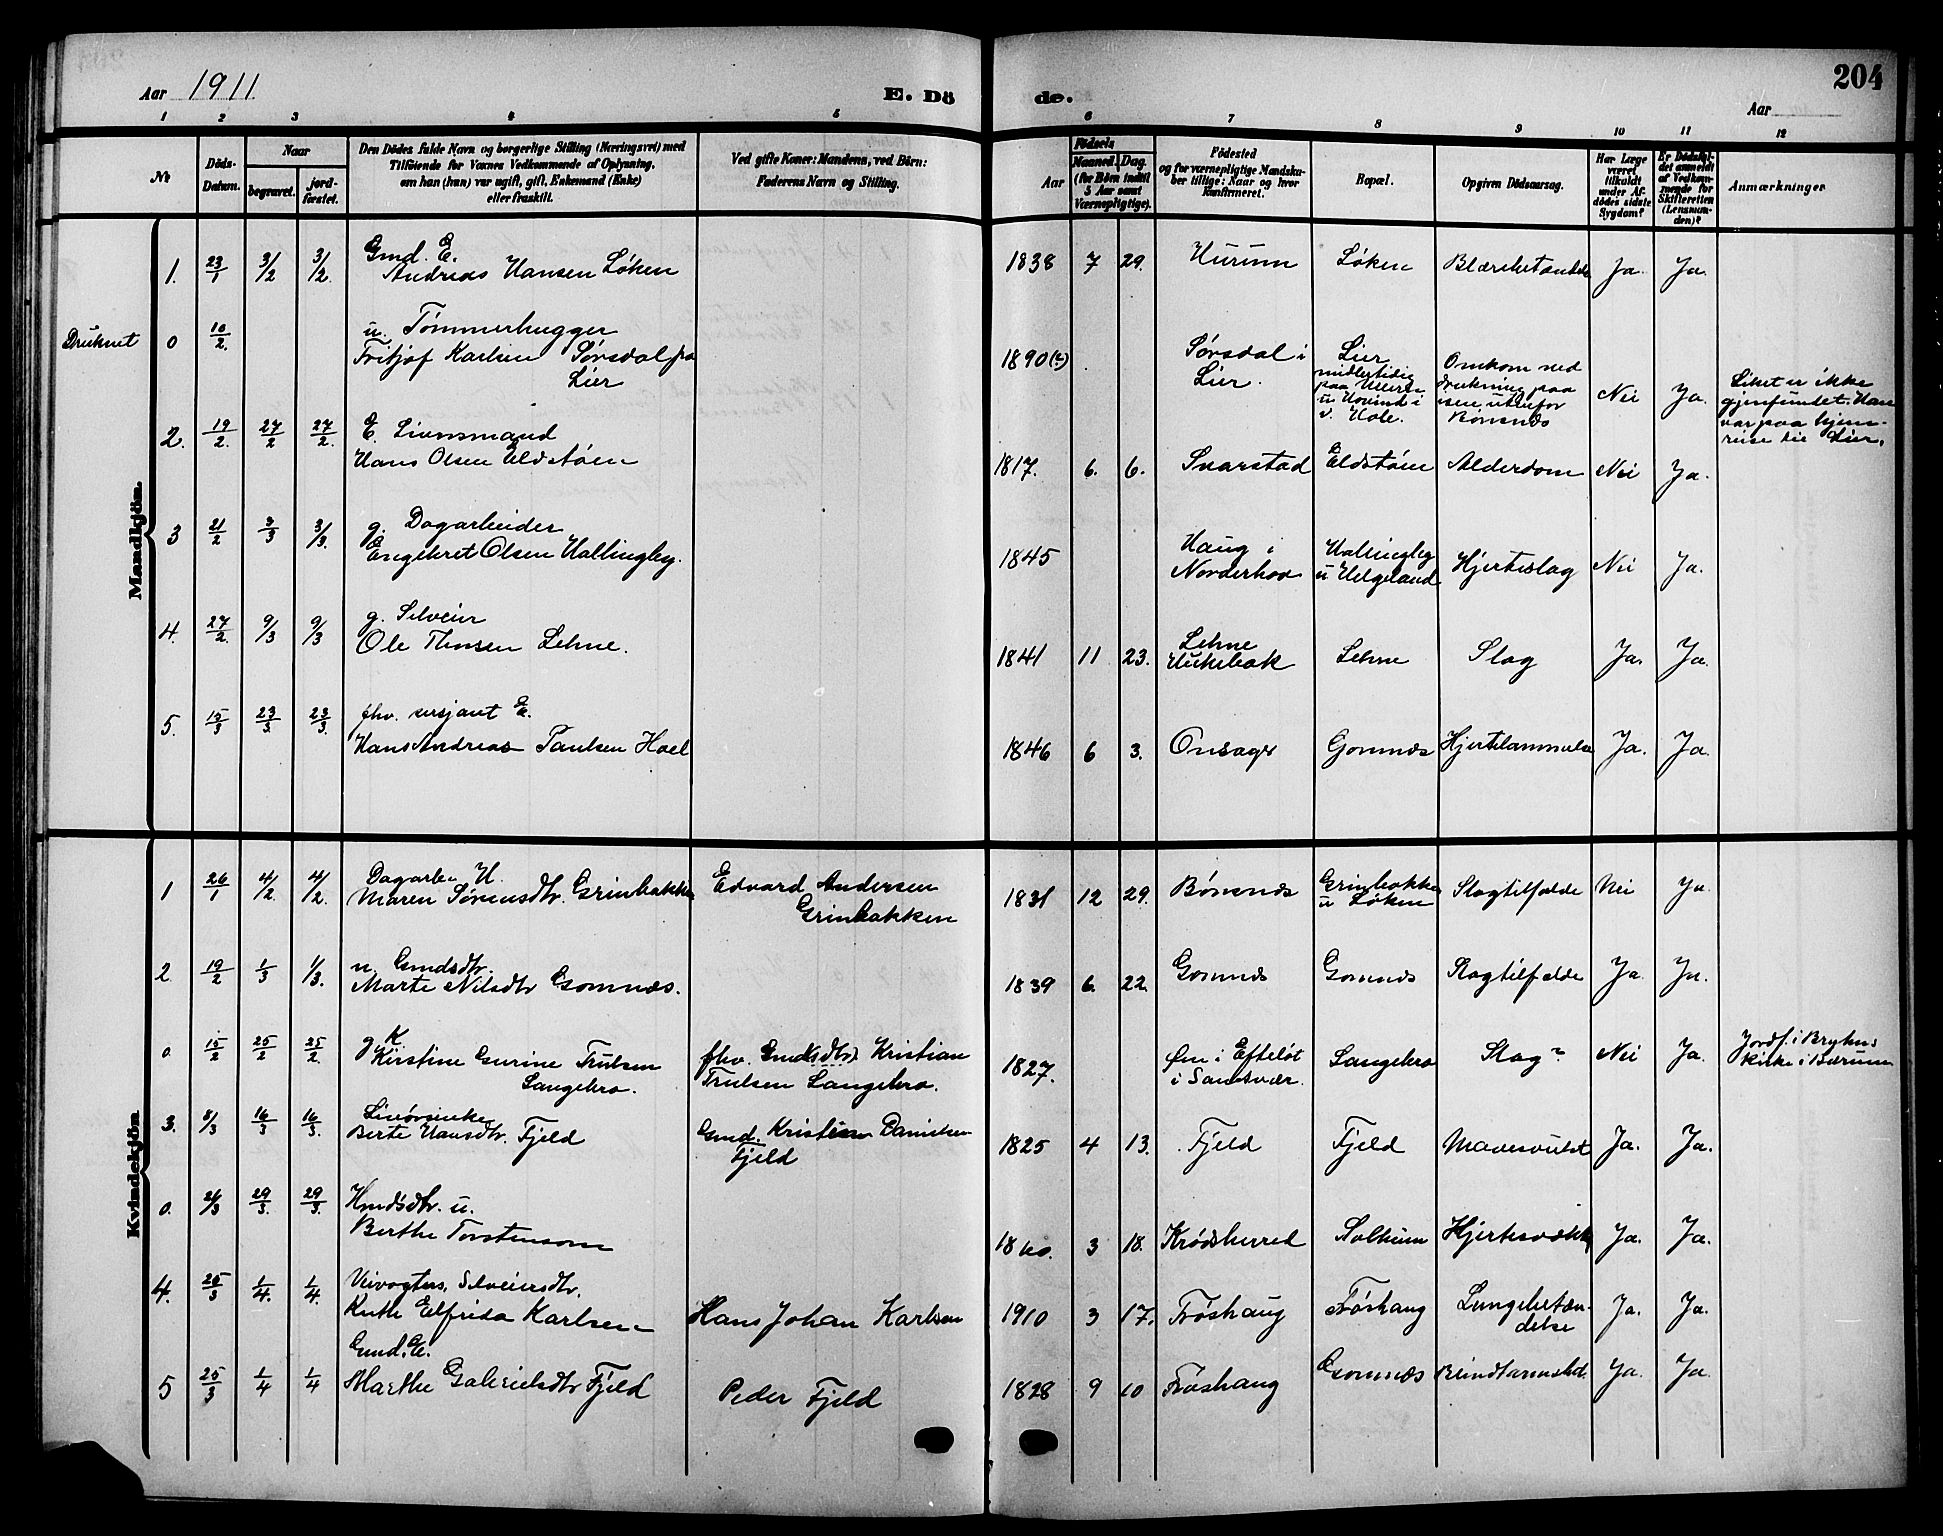 Aar 1911
E. Dö de.
Aar
204
1 2 3 4 5 6 7 8 9 10 11 12
№
Döds-Datum.
Naar
begravet.
jord-fæstet.
Den Dödes fulde Navn og borgerlige Stilling (Næringsvei) med
Tilföiende for Voxnes Vedkommende af Oplysning,
om han (hun) var ugift, gift, Enkemand (Enke)
eller fraskilt.
Ved gifte Koner: Mandens, ved Börn:
Faderens Navn og Stilling.
Födsels
Aar
Maaned. Dag.
(for Börn indtil
5 Aar samt
Værnepligtige).
Födested
og for værnepligtige Mandska-
ber tillige: Naar og hvor
Konfirmeret.
Bopæl.
Opgiven Dödsaarsag.
Har Læge
været
tilkaldt
under Af-
dödes sidste
Sygdom?
Er Dödsfal-
det anmeldt
af Vedkom-
mende for
Skifteretten
(Lensman-
den)?
Anmærkninger
Mandkjön.
1. 23/1 3/2 3/2. Gmd. E.
Andreas Hansen Løken
1838 7 29. Hurum Løken Ja. Ja.
Druknet 0 10/2. u. Tømmerhugger
Fritjof Karlsen Sørsdal fra
Lier
1890(?) Sørsdal i
Lier.
Lier
midlertidig
paa
u Hovind i
v. Hole.
Omkom ved
drukning paa
isen utenfor
Bønsnes
Nei Ja.
Liket er ikke
gjenfundet. Han
var paa hjem-
reise til Lier.
2. 19/2. 27/2 27/2. E. Livsmand
Hans Olsen Eldstøen
1817. 6. 6. Svarstad Eldstøen Alderdom Nei Ja.
3 21/2 3/3 3/3. g. Dagarbeider
Engebret Olsen Hallingby.
1845 Haug i
Norderhov
Hallingby
u Helgeland
Hjerteslag Nei Ja.
4. 27/2. 9/3 9/3 g. Selveier
Ole Thorsen Lehne.
1841 11 23. Lehne
Lehne Slag Ja. Ja.
5. 15/3 23/3 23/3. fhv. sersjant E.
Hans Andreas Paulsen Hoel
1846 6 3. Onsager Gomnæs Hjertelammelse Ja. Ja.
Kvindekjön
1 26/1 4/2. 4/2. Dagarb. H.
Maren Sørensdtr. Grinbakken
Edvard Andersen
Grinbakken
1831 12 29. Bønsnæs Grinbakken
u Løken
Slagtilfælde Nei Ja.
2. 19/2 1/3 1/3. u. Gmdsdtr.
Marte Nilsdtr Gomnæs.
1839 6. 22. Gomnæs Gomnæs Slagtilfælde Ja. Ja.
0. 15/2 25/2 25/2. g. K
Kirstine Gurine Trulsen
Langebro.
fhv. Kristian
Trulsen Langebro.
1827. Øen i Efteløt
i Sandsvær.
Langebro Slag? Nei Ja.
Jordf. i Bryns
kirke i Bærum
3. 8/3 16/3 16/3.
Berte Hansdtr. Fjeld
Gmd. Kristian Danielsen
Fjeld
1825 4 13. Fjeld Fjeld Ja. Ja.
0. 21/3 29/3. 29/3. Hmdsdtr. u.
Berthe Torstensen
1860. 3 18. Krødsherred Solheim Hjertesvækk Ja. Ja.
4. 25/3 1/4. 1/4. Veivogters, Selveiersdtr.
Ruth Elfrida Karlsen
Hans Johan Karlsen
1910 3 17. Frøshaug Frøshaug Lungebetæn-
delse
Ja. Ja.
5 25/3 1/4 1/4 Gmd. E.
Marthe Gabrielsdtr Fjeld
Peder Fjeld
1828 9 10 Frøshaug Gomnæs Ja. Ja.